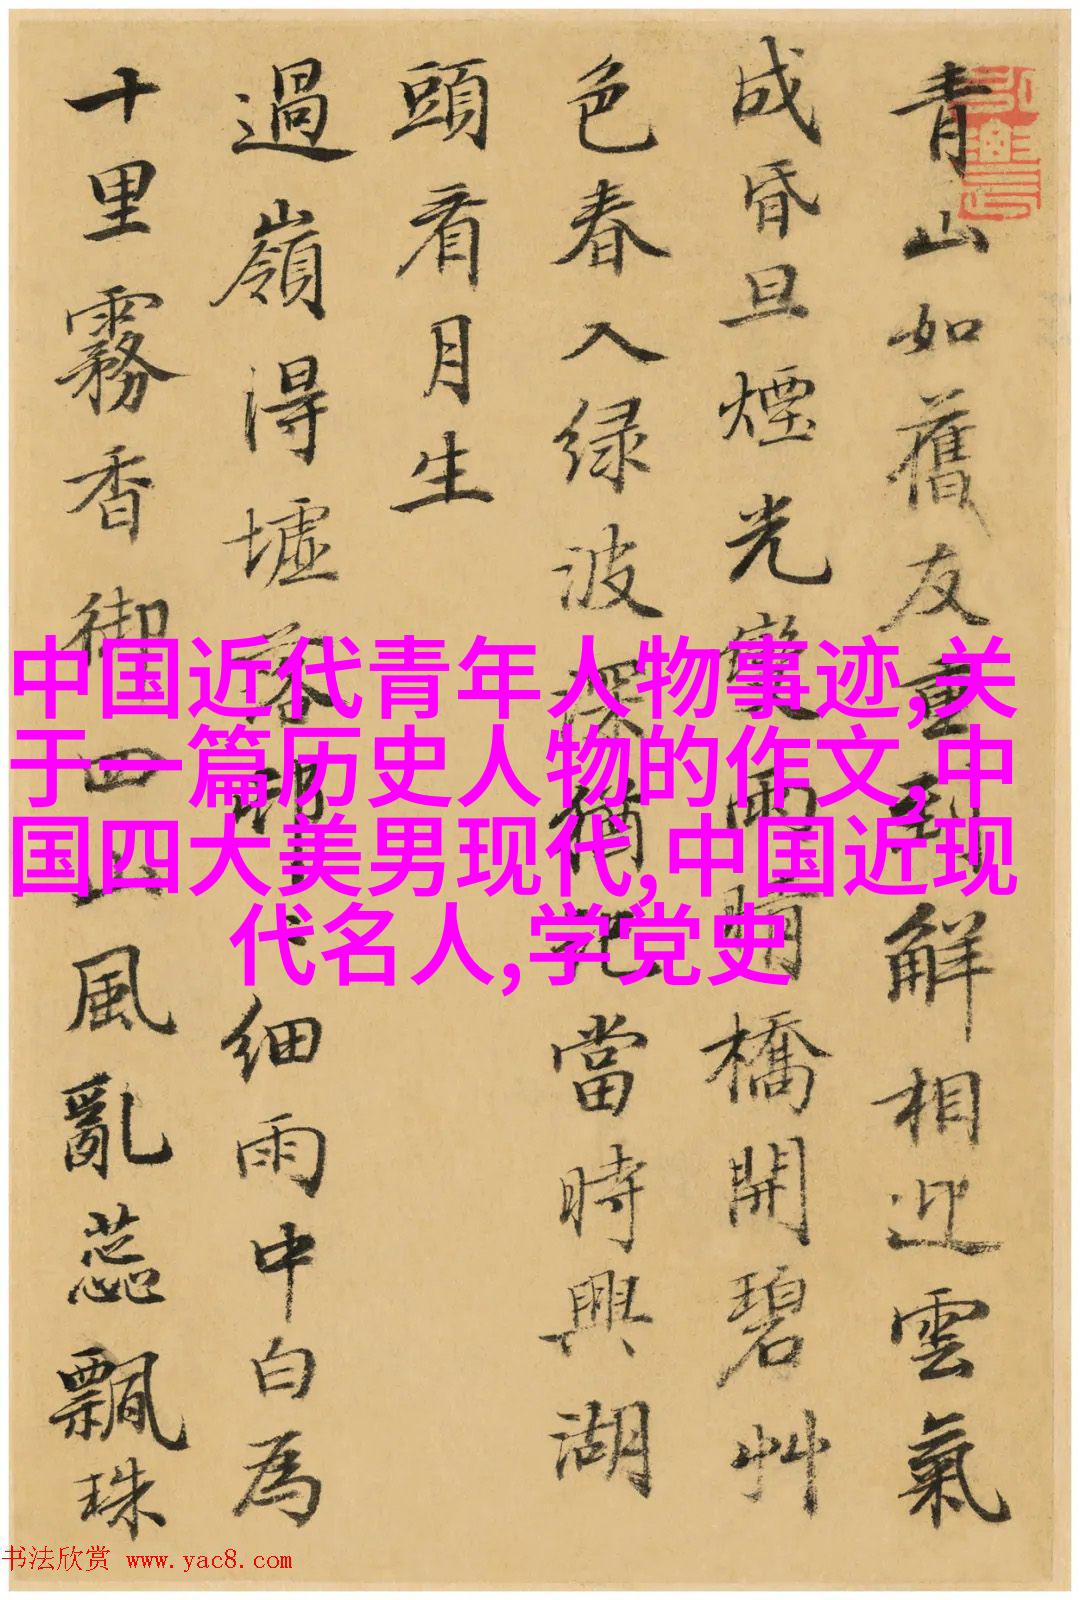 青山如舊友重到解相迎雲氣
成昏旦煙光變雨晴橋開碧艸
色春入绿波深猶記當時興湖
頭看月生
過嶺得墟落細雨中白為
十里霧香御四山風亂蕊飄珠
中国近代青年人物事迹,关
于一篇历史人物的作文,中
国四大美男现代,中国近现
代名人,学党史
书法欣赏 www.yac8.com